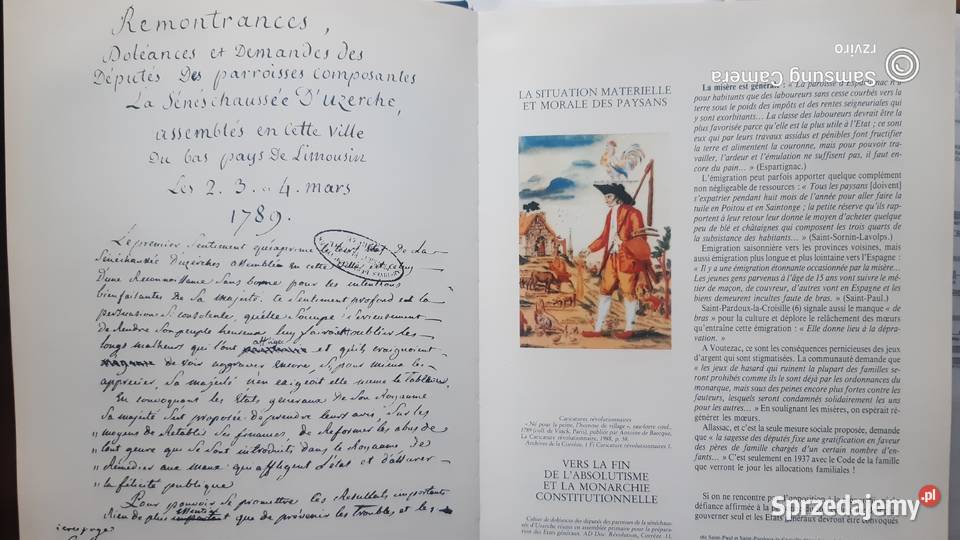 Remontrances,
Doléances et Demandes des
Députés Des parroisses composantes
La Sénéschaussée D'uzerche,
assemblés en cette ville
Du bas pays De Limousin
Les 2. 3. & 4. mars
1789.
Le premier Sentiment de La
Sénéschaussée D'uzerche en cette
D'une Reconnoissance Sans borne pour les intentions
bienfaisantes de Sa majesté. ce Sentiment profond est la
de Rendre Son peuple heureux luy oublier les
longs malheurs qui l'ont et qu'ils craignoient
de voir aggraver encore. Si, pour mieux les
apprecier, Sa majesté n'en exigeoit elle meme le Tableau.
En convoquant les Etats generaux de Son Royaume
Sa majesté S'est proposée de prendre leurs avis, Sur les
" moyens de Retablir Ses finances, de Reformer les abus de
" tout genre qui Se Sont introduits dans le Royaume de
" Remedier aux maux qui affligent l'etat et d'assurer
" la felicité publique
Pour pouvoir Se promettre Ces Resultats importants
Rien de plus essentiel que de prévenir les Troubles et les
LA SITUATION MATERIELLE
ET MORALE DES PAYSANS
Caricatures révolutionnaires
« Né pour la peine, l'homme de village », eau-forte coul.,
1789 (coll. de Vinck, Paris), publiée par Antoine de Baecque,
La Caricature révolutionnaire, 1988, p. 58.
Archives de la Corrèze. 1 Fi Caricature révolutionnaire 1.
VERS LA FIN
DE L'ABSOLUTISME
ET LA MONARCHIE
CONSTITUTIONNELLE
Cahier de doléances des députés des paroisses de la sénéchaussée
d'Uzerche réunies en assemblée primaire pour la préparation
des Etats généraux. AD Doc. Révolution, Corrèze 11.
Samsung Camera
rzviro
La misère est générale : « La paroisse d'Espartignac n'a
pour habitants que des laboureurs sans cesse courbés vers la
terre sous le poids des impôts et des rentes seigneuriales qui
y sont exorbitants... La classe des laboureurs devrait être la
plus favorisée parce qu'elle est la plus utile à l'Etat ; ce sont
eux qui par leurs travaux assidus et pénibles font fructifier
la terre et alimentent la couronne, mais pour pouvoir tra-
vailler, l'ardeur et l'émulation ne suffisent pas, il faut en-
core du pain... » (Espartignac.)
L'émigration peut parfois apporter quelque complément
non négligeable de ressources : « Tous les paysans [doivent]
s'expatrier pendant huit mois de l'année pour aller faire la
tuile en Poitou et en Saintonge ; la petite réserve qu'ils rap-
portent à leur retour leur donne le moyen d'acheter quelque
peu de blé et châtaignes qui composent les trois quarts de
la subsistance des habitants... » (Saint-Sornin-Lavolps.)
Emigration saisonnière vers les provinces voisines, mais
aussi émigration plus longue et plus lointaine vers l'Espagne :
« Il y a une émigration étonnante occasionnée par la misère...
Les jeunes gens parvenus à l'âge de 15 ans vont suivre le mé-
tier de maçon, de couvreur, d'autres vont en Espagne et les
biens demeurent incultes faute de bras. » (Saint-Paul.)
Saint-Pardoux-la-Croisille (6) signale aussi le manque « de
bras » pour la culture et déplore le relâchement des mœurs
qu'entraîne cette émigration : « Elle donne lieu à la dépra-
vation. »
A Voutezac, ce sont les conséquences pernicieuses des jeux
d'argent qui sont stigmatisées. La communauté demande que
« les jeux de hasard qui ruinent la plupart des familles seront
prohibés comme ils le sont déjà par les ordonnances du
monarque, mais sous des peines encore plus fortes contre les
fauteurs, lesquels seront condamnés solidairement les uns
pour les autres... » En soulignant les misères, on espérait ré-
générer les mœurs.
Allassac, et c'est la seule mesure sociale proposée, demande
que « la sagesse des députés fixe une gratification en faveur
des pères de famille chargés d'un certain nombre d'en-
fants... » C'est seulement en 1937 avec le Code de la famille
que verront le jour les allocations familiales !
Si on ne rencontre pas d'opposition à la
défiance affirmée à la
gouverner seul et les Etats Généraux devront être convoqués
Sprzedajemy.pl